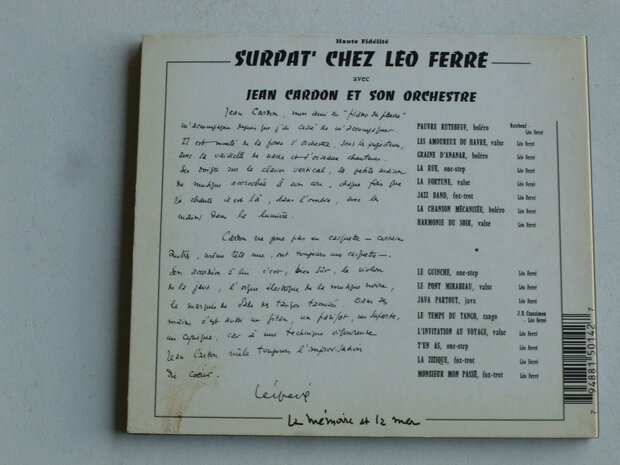 Haute Fidélité
SURPAT' CHEZ LÉO FERRÉ
avec
JEAN CARDON ET SON ORCHESTRE
Jean Cardon, mon ami du "piano du pauvre"
m'accompagne depuis que j'ai cessé de m'accompagner.
Il est monté de la fosse d'orchestre, sous les projecteurs,
avec sa vaisselle de nacre et d'oiseaux chanteurs.
Ses doigts sur le clavier vertical, sa petite maison
de musique accrochée à son cou, chaque fois que
je chante il est là, dans l'ombre, avec les
mains dans la lumière.
Cardon ne joue pas en casquette — certains
autres, même tête nue, ont toujours une casquette —
Son accordéon à lui c'est, bien sûr, le violon
de la java, l'orgue électrique de la musique noire,
le marquis de Sade des tangos tamisés. Dans ses
mains c'est aussi un gitan, un
un cynique, car à une technique vigoureuse
Jean Cardon mêle toujours l'improvisation
du cœur.
Léo Ferré
PAUVRE RUTEBEUF, boléro Rutebeuf - Léo Ferré
LES AMOUREUX DU HAVRE, valse Léo Ferré
GRAINE D'ANANAR, boléro Léo Ferré
LA RUE, one-step Léo Ferré
LA FORTUNE, valse Léo Ferré
JAZZ BAND, fox-trot Léo Ferré
LA CHANSON MÉCANISÉE, boléro Léo Ferré
HARMONIE DU SOIR, valse Léo Ferré
*
LE GUINCHE, one-step Léo Ferré
LE PONT MIRABEAU, valse Léo Ferré
JAVA PARTOUT, java Léo Ferré
LE TEMPS DU TANGO, tango J.R. Caussimon - Léo Ferré
L'INVITATION AU VOYAGE, valse Léo Ferré
T'EN AS, one-step Léo Ferré
LA ZIZIQUE, fox-trot Léo Ferré
MONSIEUR MON PASSÉ, fox-trot Léo Ferré
7 94881 50142 7
La mémoire et la mer